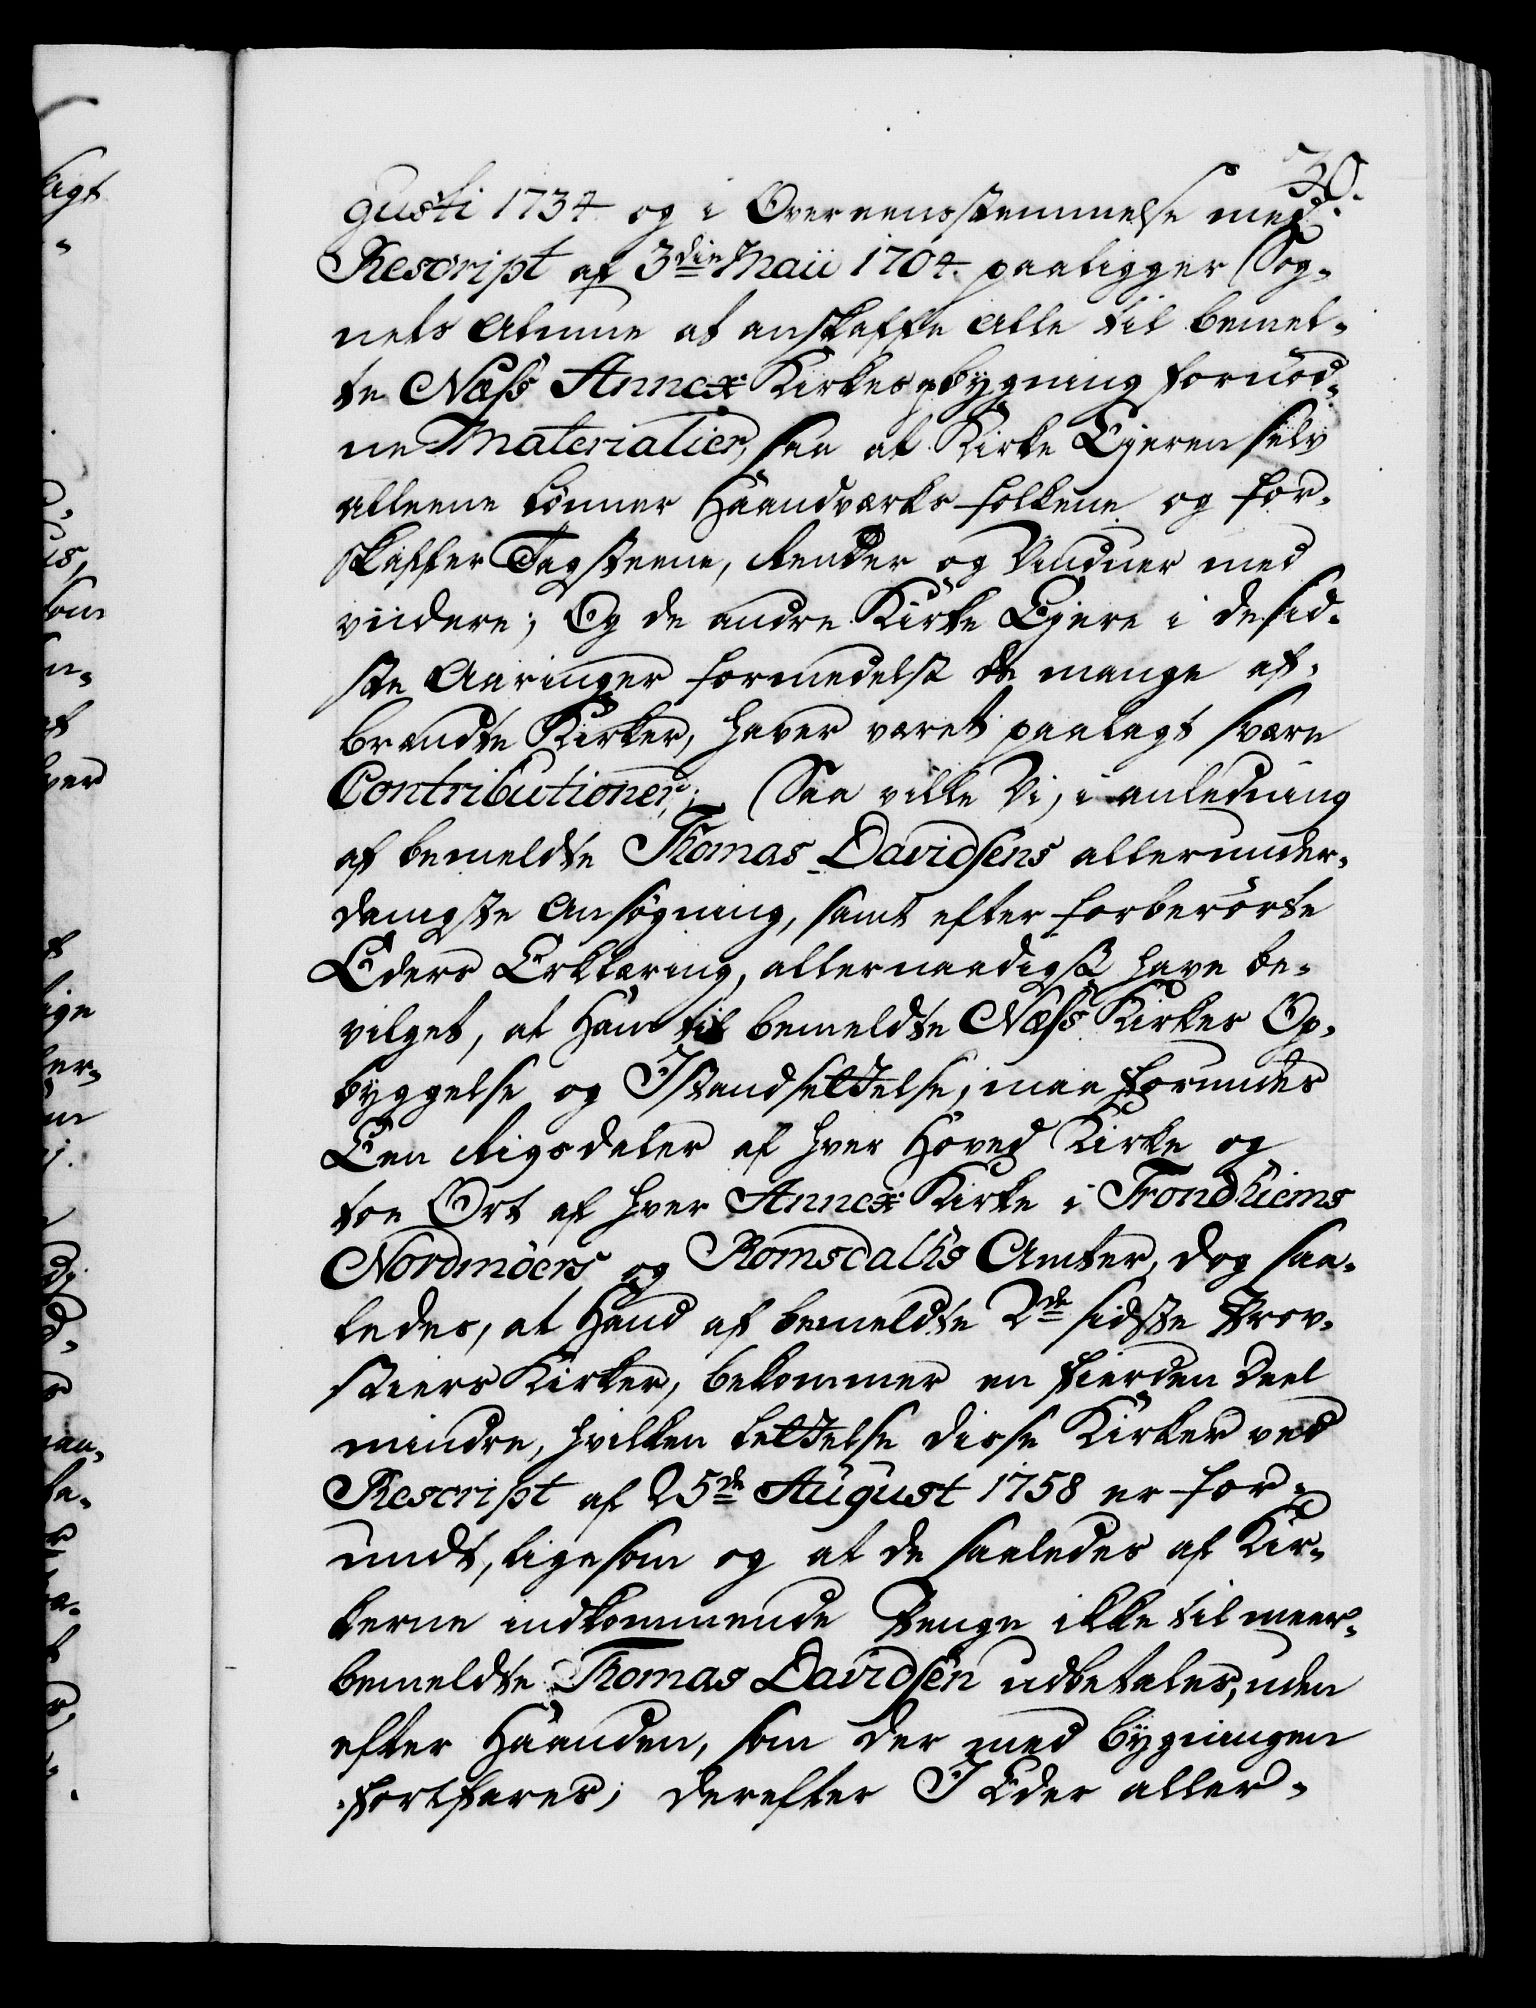 30.
gusti 1734. og i Overeensstemmelse med
Rescript af 3die Maii 1704. paaligger Sog-
nets Almue at anskaffe alle til bemel-
te Næss Annex Kirkes bygning fornöd-
ne Materialier, saa at Kirke Ejeren selv
alleene lönner Haandværks-folkene og for-
skaffer Tagsteene, Render og Vinduer med
viidere; Og de andre Kirke Ejere i de sid-
ste Aaringer formedelst de mange af-
brændte Kirker, haver været paalagt svære
Contributioner; Saa ville Vi, i anledning
af bemeldte Thomas Davidsens allerunder-
danigste Ansögning, samt efter forberörte
Eders Erklæring, allernaadigst have be-
vilget, at Ham til bemeldte Næss Kirkes Op-
byggelse og Istandsettelse, maa forundes
Een Rigsdaler af hver Hoved Kirke og
toe Ort af hver Annex Kirke i Trondhiems
Nordmöers og Romsdalhs Amter, dog saa-
ledes, at Hand af bemeldte 2de sidste Prov-
stiers Kirker, bekommer en fierden Deel
mindre, hvilken lettelse disse Kirker ved
Rescript af 25de August 1758 er for-
undt, ligesom og at de saaledes af Kir-
kerne indkommende Penge ikke til meer-
bemeldte Thomas Davidsen udbetales, uden
efter Haanden, som der med bygningen
fortfares; derefter I Eder aller-